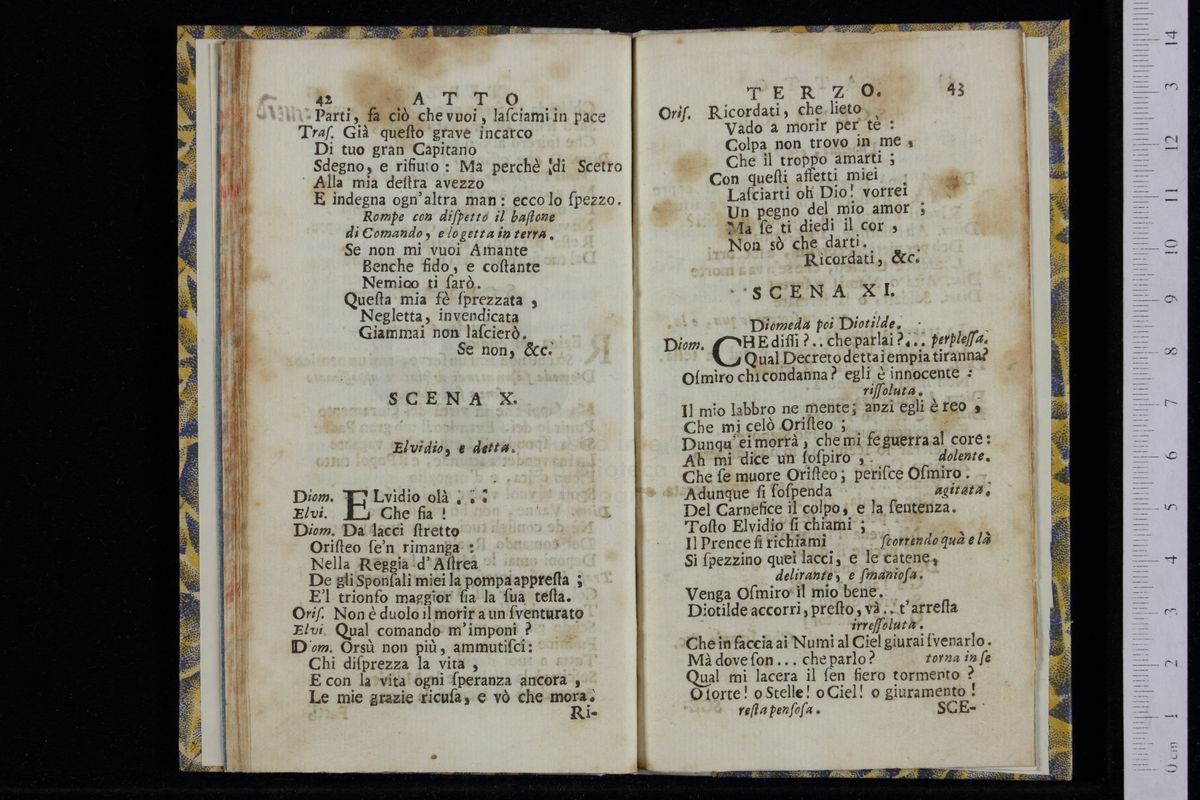 42 ATTO
Parti, fa ciò che vuoi, laſciami in pace
Traſ. Già queſto grave incarco
Di tuo gran Capitano
Sdegno, e rifiuto : Ma perchè di Scetro
Alla mia deſtra avezzo
E indegna ogn'altra man : ecco lo ſpezzo.
Rompe con diſpetto il baſtone
di Comando, e lo getta in terra.
Se non mi vuoi Amante
Benche fido, e coſtante
Nemico ti ſarò.
Queſta mia fè ſprezzata ,
Negletta, invendicata
Giammai non laſcierò.
Se non, &c.
SCENA X.
Elvidio, e detta.
Diom. ELvidio olà . . .
Elvi. Che ſia !
Diom. Da lacci ſtretto
Oriſteo ſe'n rimanga :
Nella Reggia d'Aſtrea
De gli Sponſali miei la pompa appreſta ;
E'l trionfo maggior ſia la ſua teſta.
Oriſ. Non è duolo il morir a un ſventurato
Elvi. Qual comando m'imponi ?
Diom. Orsù non più, ammutiſci :
Chi diſprezza la vita ,
E con la vita ogni ſperanza ancora ,
Le mie grazie ricuſa, e vò che mora.
Ri-
TERZO. 43
Oriſ. Ricordati, che lieto
Vado a morir per tè :
Colpa non trovo in me ,
Che il troppo amarti ;
Con queſti affetti miei
Laſciarti oh Dio! vorrei
Un pegno del mio amor ;
Ma ſe ti diedi il cor ,
Non sò che darti.
Ricordati, &c.
SCENA XI.
Diomeda poi Diotilde.
Diom. CHE diſſi ?.. che parlai ?... perpleſſa.
Qual Decreto dettai empia tiranna?
Oſmiro chi condanna ? egli è innocente :
riſſoluta.
Il mio labbro ne mente; anzi egli è reo ,
Che mi celò Oriſteo ;
Dunqu' ei morrà , che mi fe guerra al core :
Ah mi dice un ſoſpiro , dolente.
Che ſe muore Oriſteo ; periſce Oſmiro .
Adunque ſi ſoſpenda agitata.
Del Carnefice il colpo, e la ſentenza.
Toſto Elvidio ſi chiami ;
Il Prence ſi richiami ſcorrendo quà e là
Si ſpezzino quei lacci, e le catene,
delirante, e ſmanioſa.
Venga Oſmiro il mio bene.
Diotilde accorri, preſto, và .. t'arreſta
irreſſoluta.
Che in faccia ai Numi al Ciel giurai ſvenarlo.
Mà dove ſon ... che parlo ? torna in ſe
Qual mi lacera il ſen fiero tormento ?
O ſorte ! o Stelle ! o Ciel ! o giuramento !
reſta penſoſa. SCE-